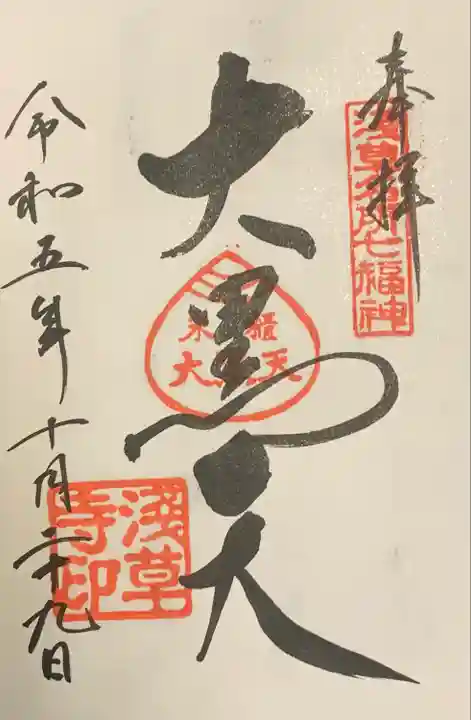 奉拝
浅草名所七福神
大黒天
米櫃
大黒天
浅草
寺印
令和五年十月二十九日